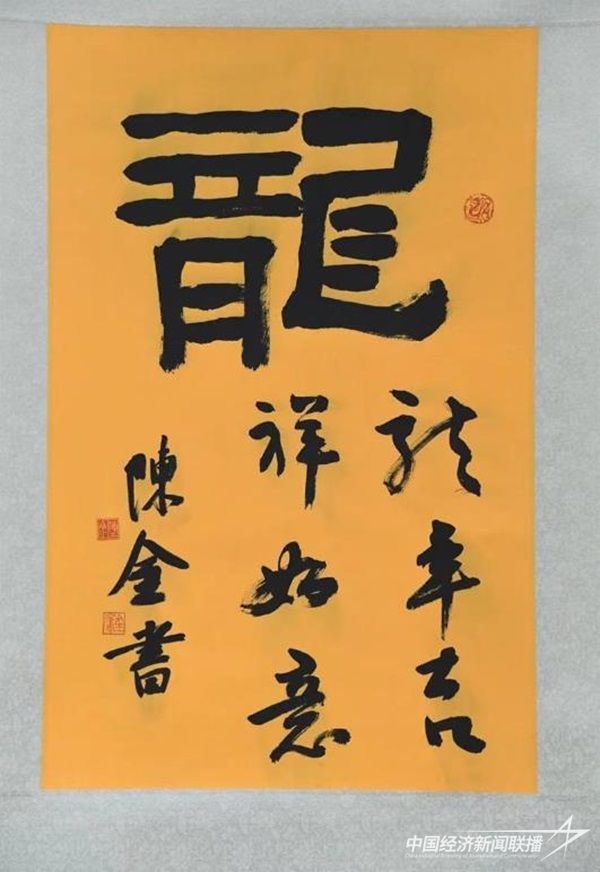 龍
龙年吉
祥如意
陳全書
中国经济新闻联播